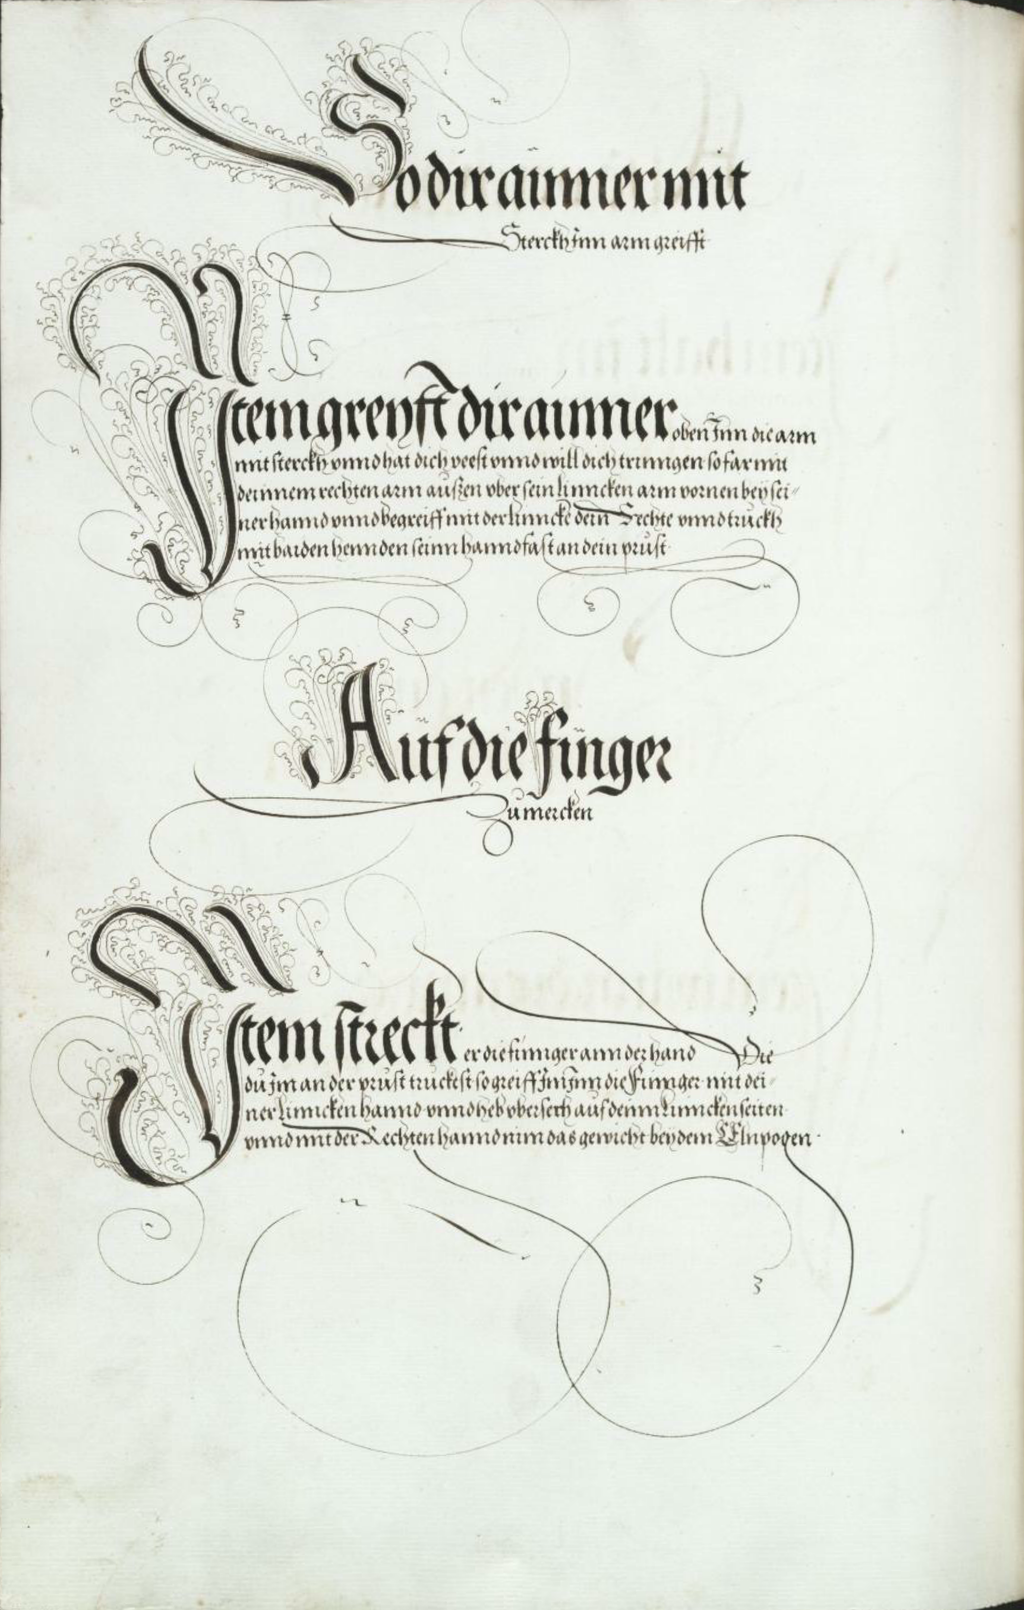 So dir ainner mit
Sterckh jnn arm greifft
Jtem greyfft dir ainner oben Jnn die arm
mit sterckh vnnd hat dich veest vnnd will dich trinngen so far mit
deinnem rechten arm außen vber sein linncken arm vornen bey sei-
ner hannd vnnd begreiff mit der linncke dein Rechte vnnd truckh
mit baiden hennden seinn hannd fast an dein prust
Auf die finger
Zu mercken
Jtem streckt er die finnger ann der hand Die
du jm an der prust truckest so greiff Jm Jnn die Finnger mit dei-
ner linncken hannd vnnd heb vbersech auf denn linncken seiten
vnnd mit der Rechten hannd nim das gewicht bey dem Elnpogen